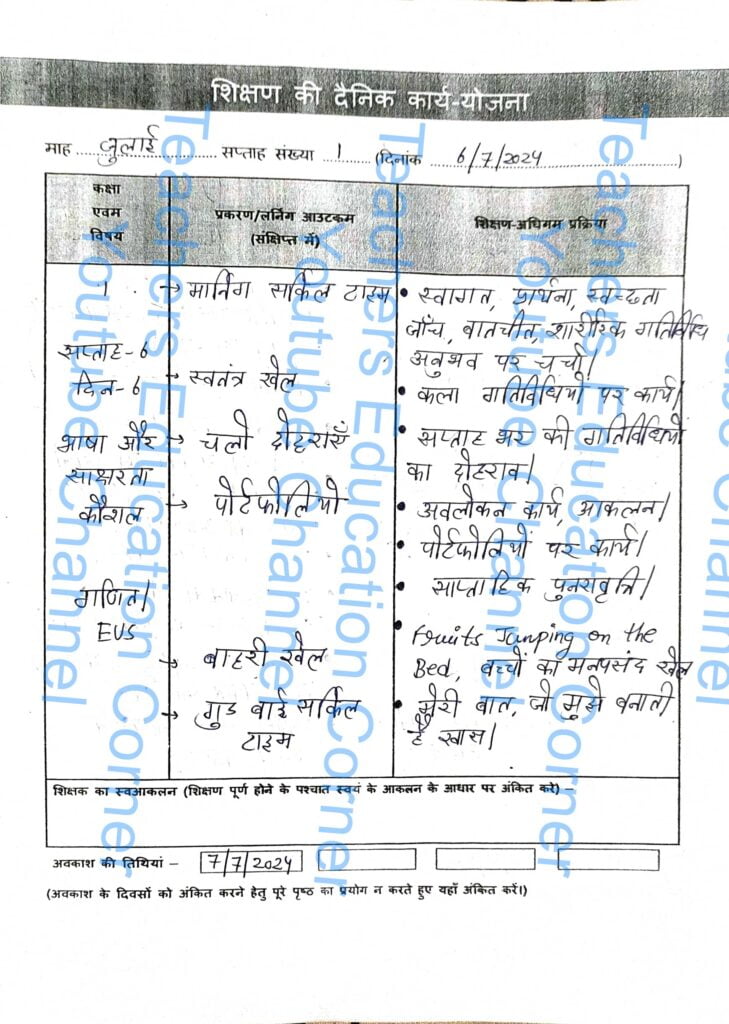 शिक्षण की दैनिक कार्य-योजना
माह ....जुलाई.... सप्ताह संख्या ...1... (दिनांक ...6/7/2024...)
कक्षा एवम विषय
प्रकरण/लर्निंग आउटकम (संक्षिप्त में)
शिक्षण-अधिगम प्रक्रिया
1
सप्ताह-6
दिन-6
भाषा और
साक्षरता
कौशल
गणित/
EVS
→ मार्निंग सर्किल टाइम
→ स्वतंत्र खेल
→ चलो दोहराएँ
→ पोर्टफोलियो
→ बाहरी खेल
→ गुड बाई सर्किल
टाइम
• स्वागत, प्रार्थना, स्वच्छता
जाँच, वातचीत, शारीरिक गतिविधि
अनुभव पर चर्चा।
• कला गतिविधियों पर कार्य।
• सप्ताह भर की गतिविधियों
का दोहराव।
• अवलोकन कार्य, आकलन।
• पोर्टफोलियों पर कार्य।
• साप्ताहिक पुनरावृत्ति।
• Fruits Jumping on the
Bed, बच्चों का मनपसंद खेल
• मेरी बात, जो मुझे बनाती
है खास।
शिक्षक का स्वआकलन (शिक्षण पूर्ण होने के पश्चात स्वयं के आकलन के आधार पर अंकित करे) –
अवकाश की तिथियां – 7/7/2024
(अवकाश के दिवसों को अंकित करने हेतु पूरे पृष्ठ का प्रयोग न करते हुए यहाँ अंकित करें।)
Teachers Education Corner
Youtube Channel
Teachers Education Corner
Youtube Channel
Teachers Education Corner
Youtube Channel